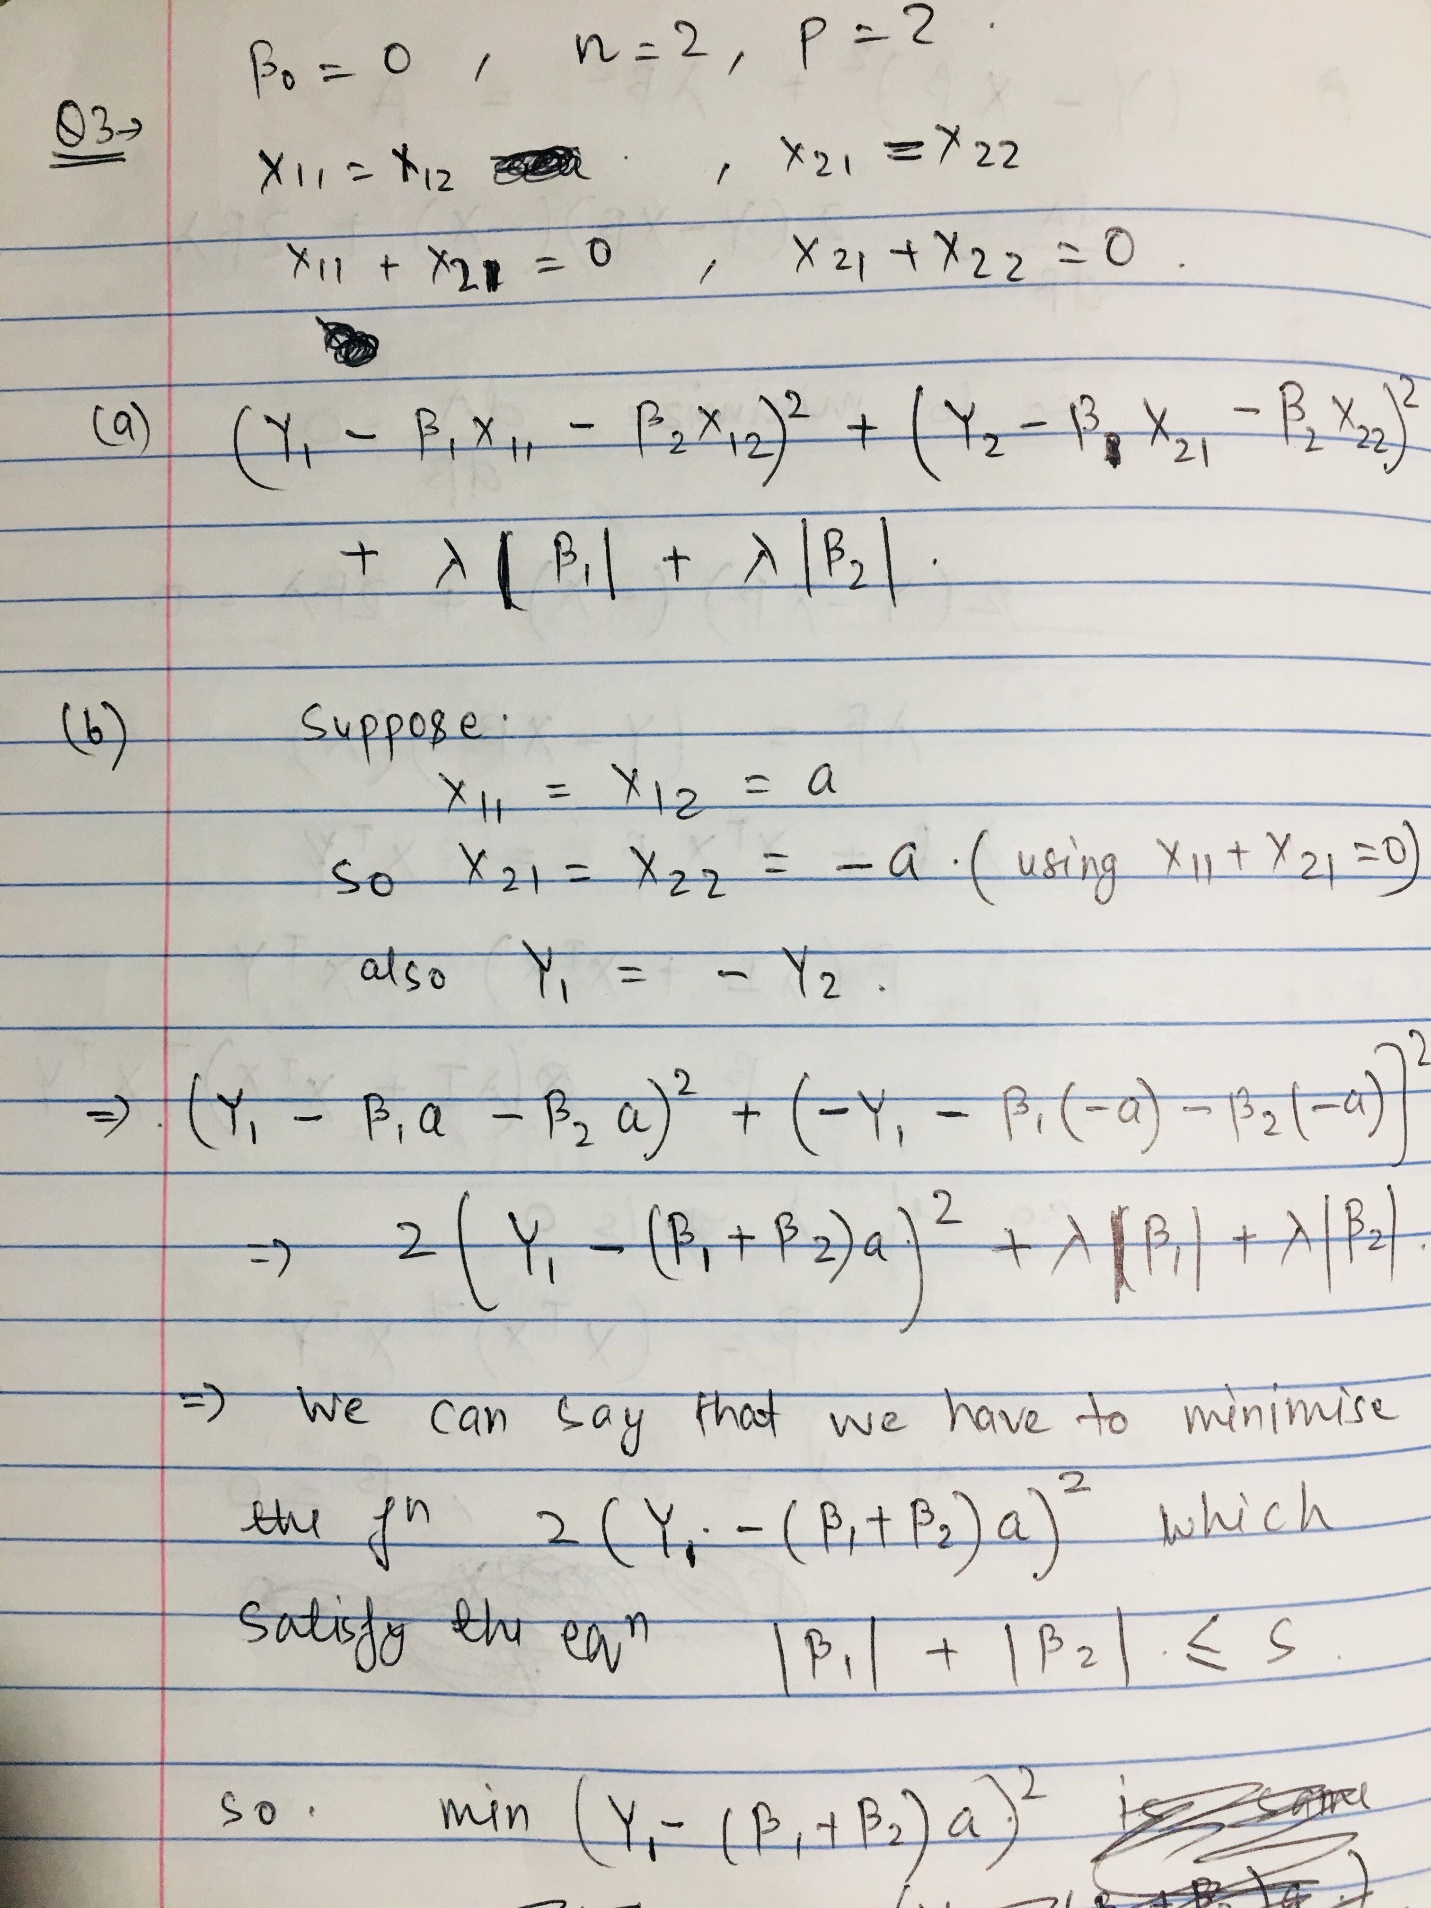 β₀ = 0 , n = 2, p = 2 .
Q3→
X₁₁ = X₁₂ , X₂₁ = X₂₂
X₁₁ + X₂₁ = 0 , X₂₁ + X₂₂ = 0 .
(a) (Y₁ - β₁X₁₁ - β₂X₁₂)² + (Y₂ - β₁X₂₁ - β₂X₂₂)²
+ λ|β₁| + λ|β₂| .
(b) Suppose :
X₁₁ = X₁₂ = a
so X₂₁ = X₂₂ = -a . (using X₁₁ + X₂₁ = 0)
also Y₁ = - Y₂ .
⇒ (Y₁ - β₁a - β₂a)² + (-Y₁ - β₁(-a) - β₂(-a))²
⇒ 2(Y₁ - (β₁ + β₂)a)² + λ|β₁| + λ|β₂| .
⇒ We can say that we have to minimise
the fⁿ 2(Y₁ - (β₁ + β₂)a)² which
satisfy the eqⁿ |β₁| + |β₂| ≤ s .
so . min (Y₁ - (β₁ + β₂)a)²